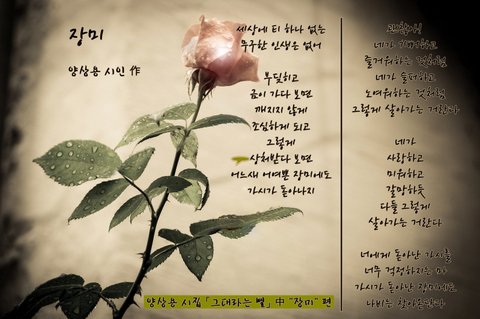 장미
양상용 시인 作
세상에 티 하나 없는
무구한 인생은 없어
부딪히고
금이 가다 보면
깨지지 않게
조심하게 되고
그렇게
상처받다 보면
어느새 어여쁜 장미에도
가시가 돋아나지
괜찮아
네가 기뻐하고
즐거워하는 것처럼
네가 슬퍼하고
노여워하는 것처럼
그렇게 살아가는 거란다
네가
사랑하고
미워하고
갈망하듯
다들 그렇게
살아가는 거란다
너에게 돋아난 가시를
너무 걱정하지는 마
가시가 돋아난 장미에도
나비는 찾아온단다
양상용 시집 「그대라는 별」 中 "장미" 편